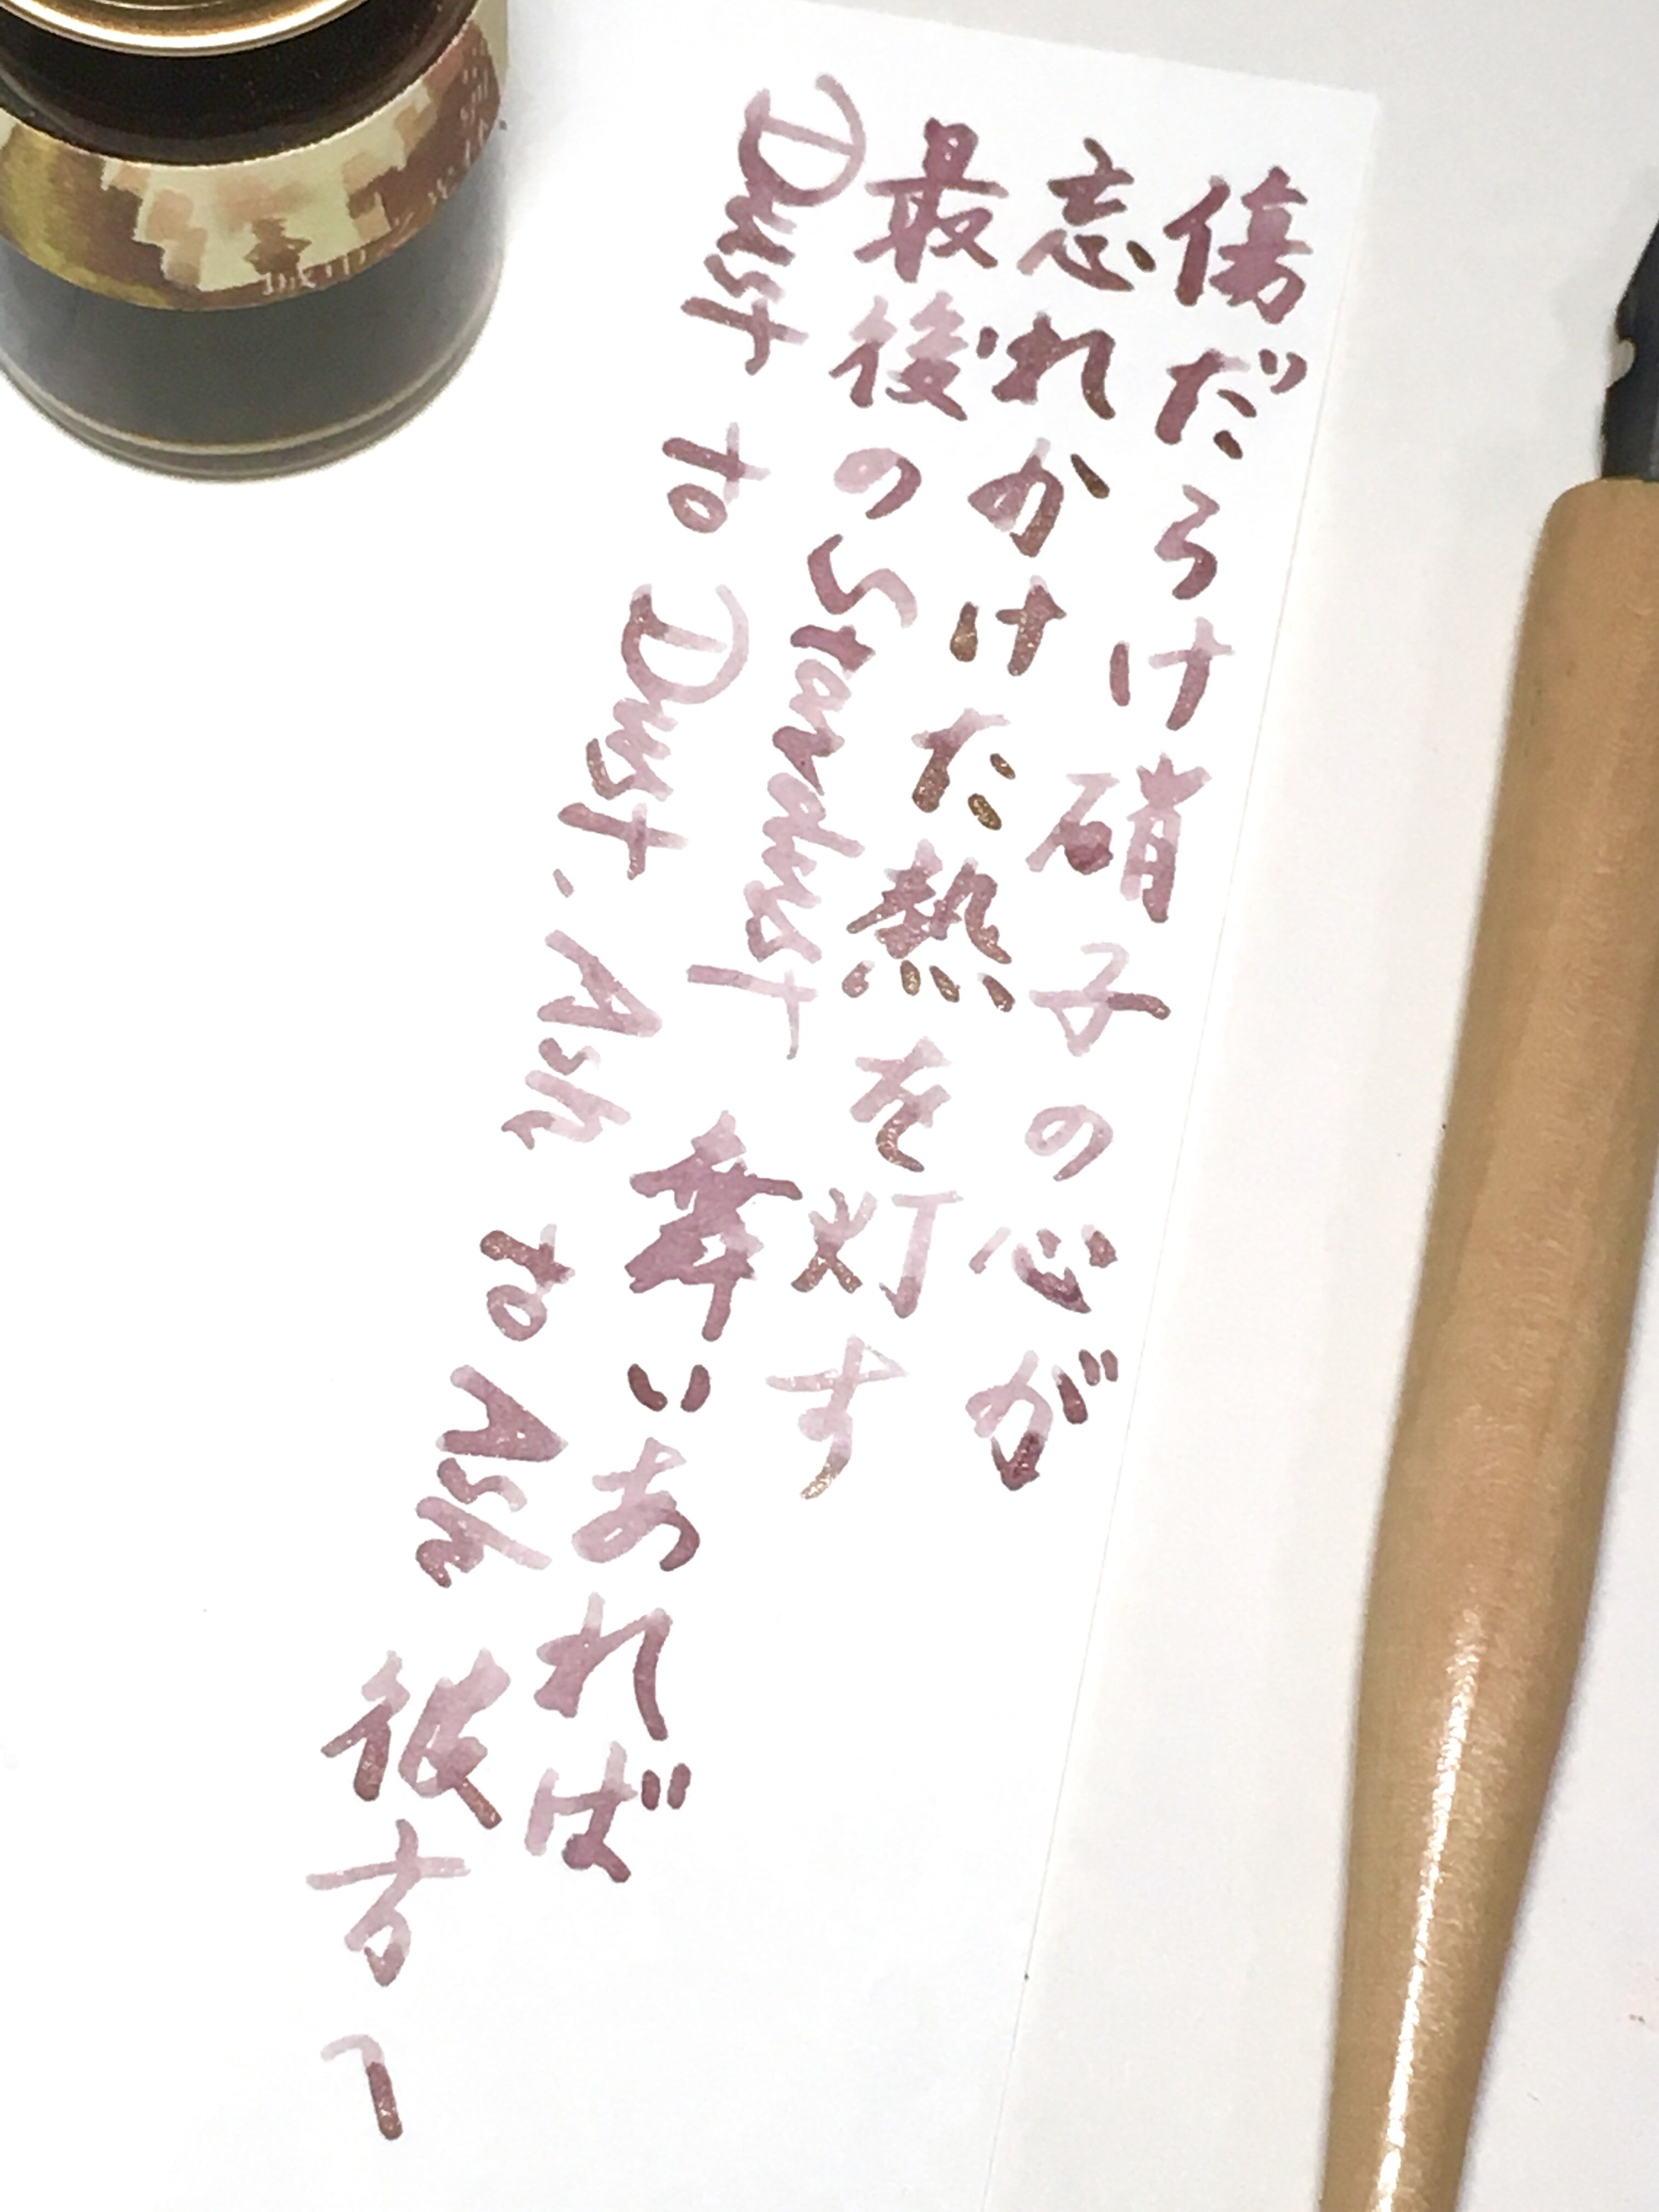 傷だらけ硝子の心が
忘れかけた熱を灯す
最後のStardust 舞いあれば
Dust to Dust, Ash to Ash 彼方へ